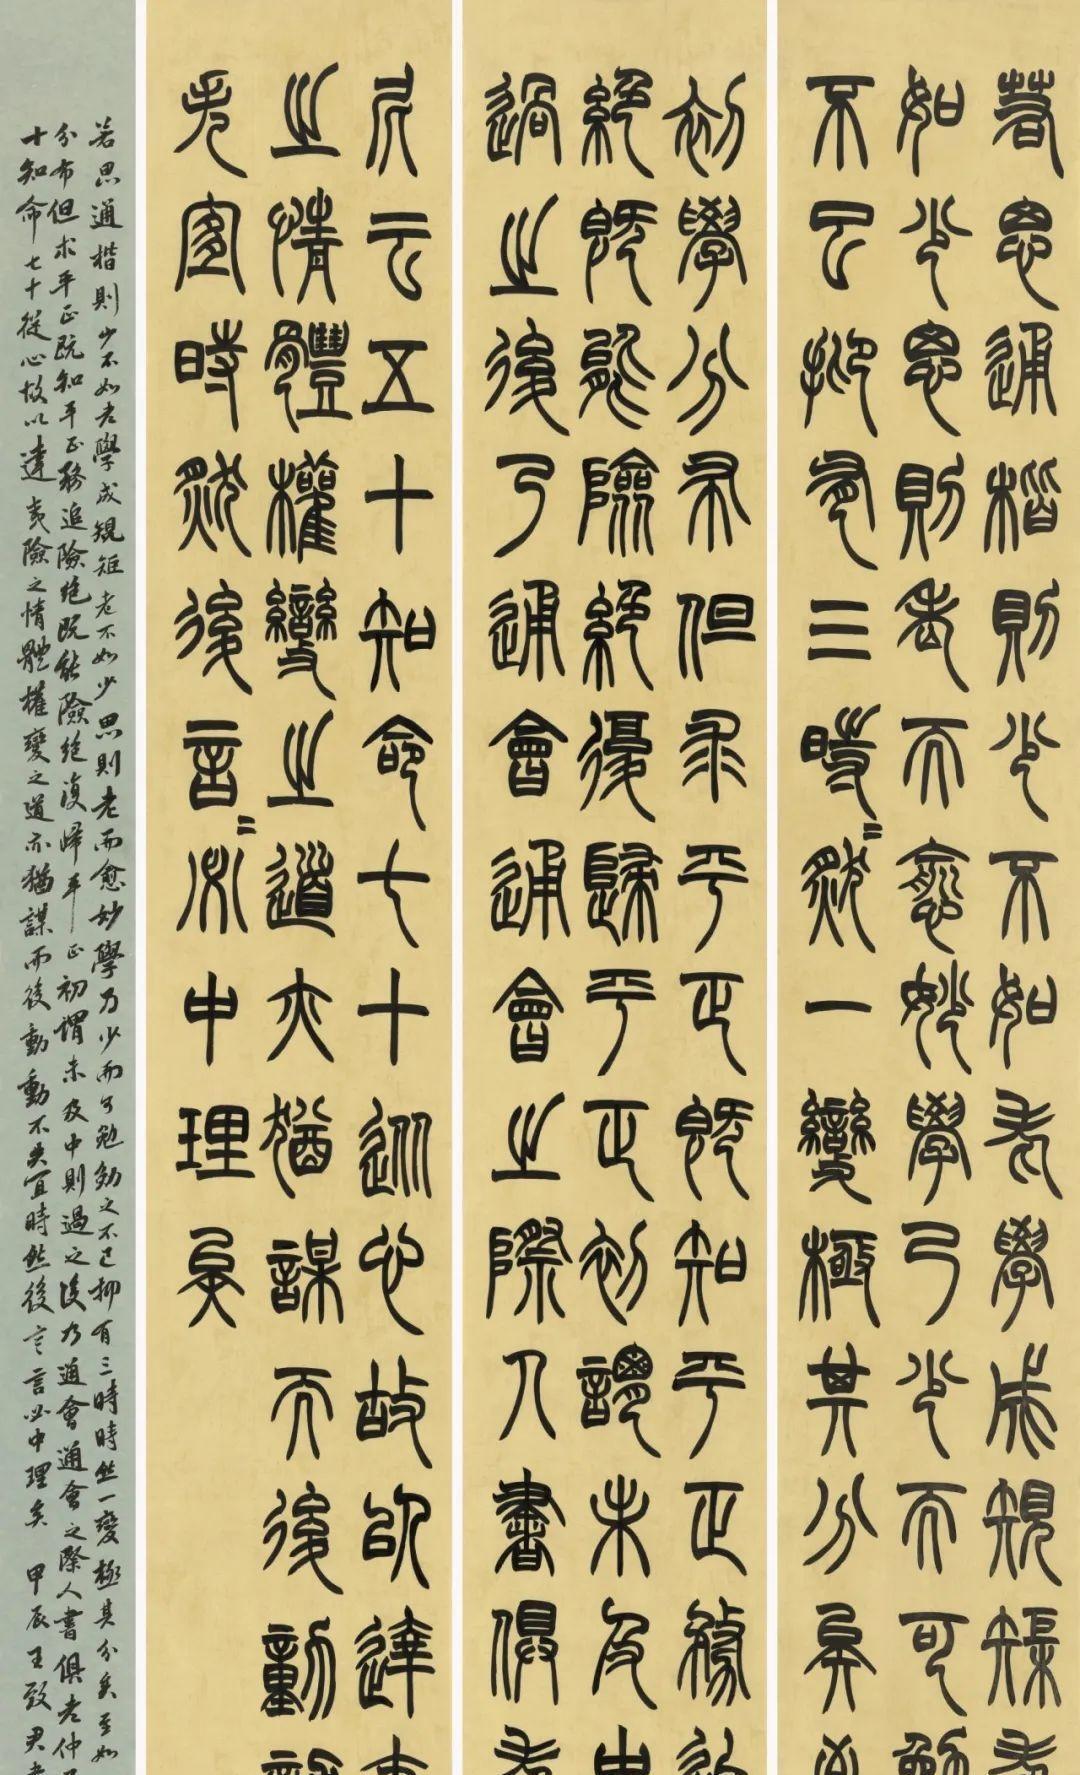 若思通楷則少不如老學成規矩老
如少思則老而愈妙學乃少而可勉
不已抑有三時〻然一變極其分矣至
初學分布但求平正既知平正務追
絕既能險絕復歸平正初謂未及中
過之後乃通會通會之際人書俱老
尼云五十知命七十從心故以達夷
之情體權變之道亦猶謀而後動動
失宜時然後言〻必中理矣
若思通楷則少不如老學成規矩老不如少思則老而愈妙學乃少而可勉効之不已抑有三時時然一變極其分矣至如
分布但求平正既知平正務追險絕既能險絕復歸平正初謂未及中則過之後乃通會通會之際人書俱老仲
十知命七十從心故以達夷險之情體權變之道亦猶謀而後動動不失宜時然後言言必中理矣 甲辰王致君